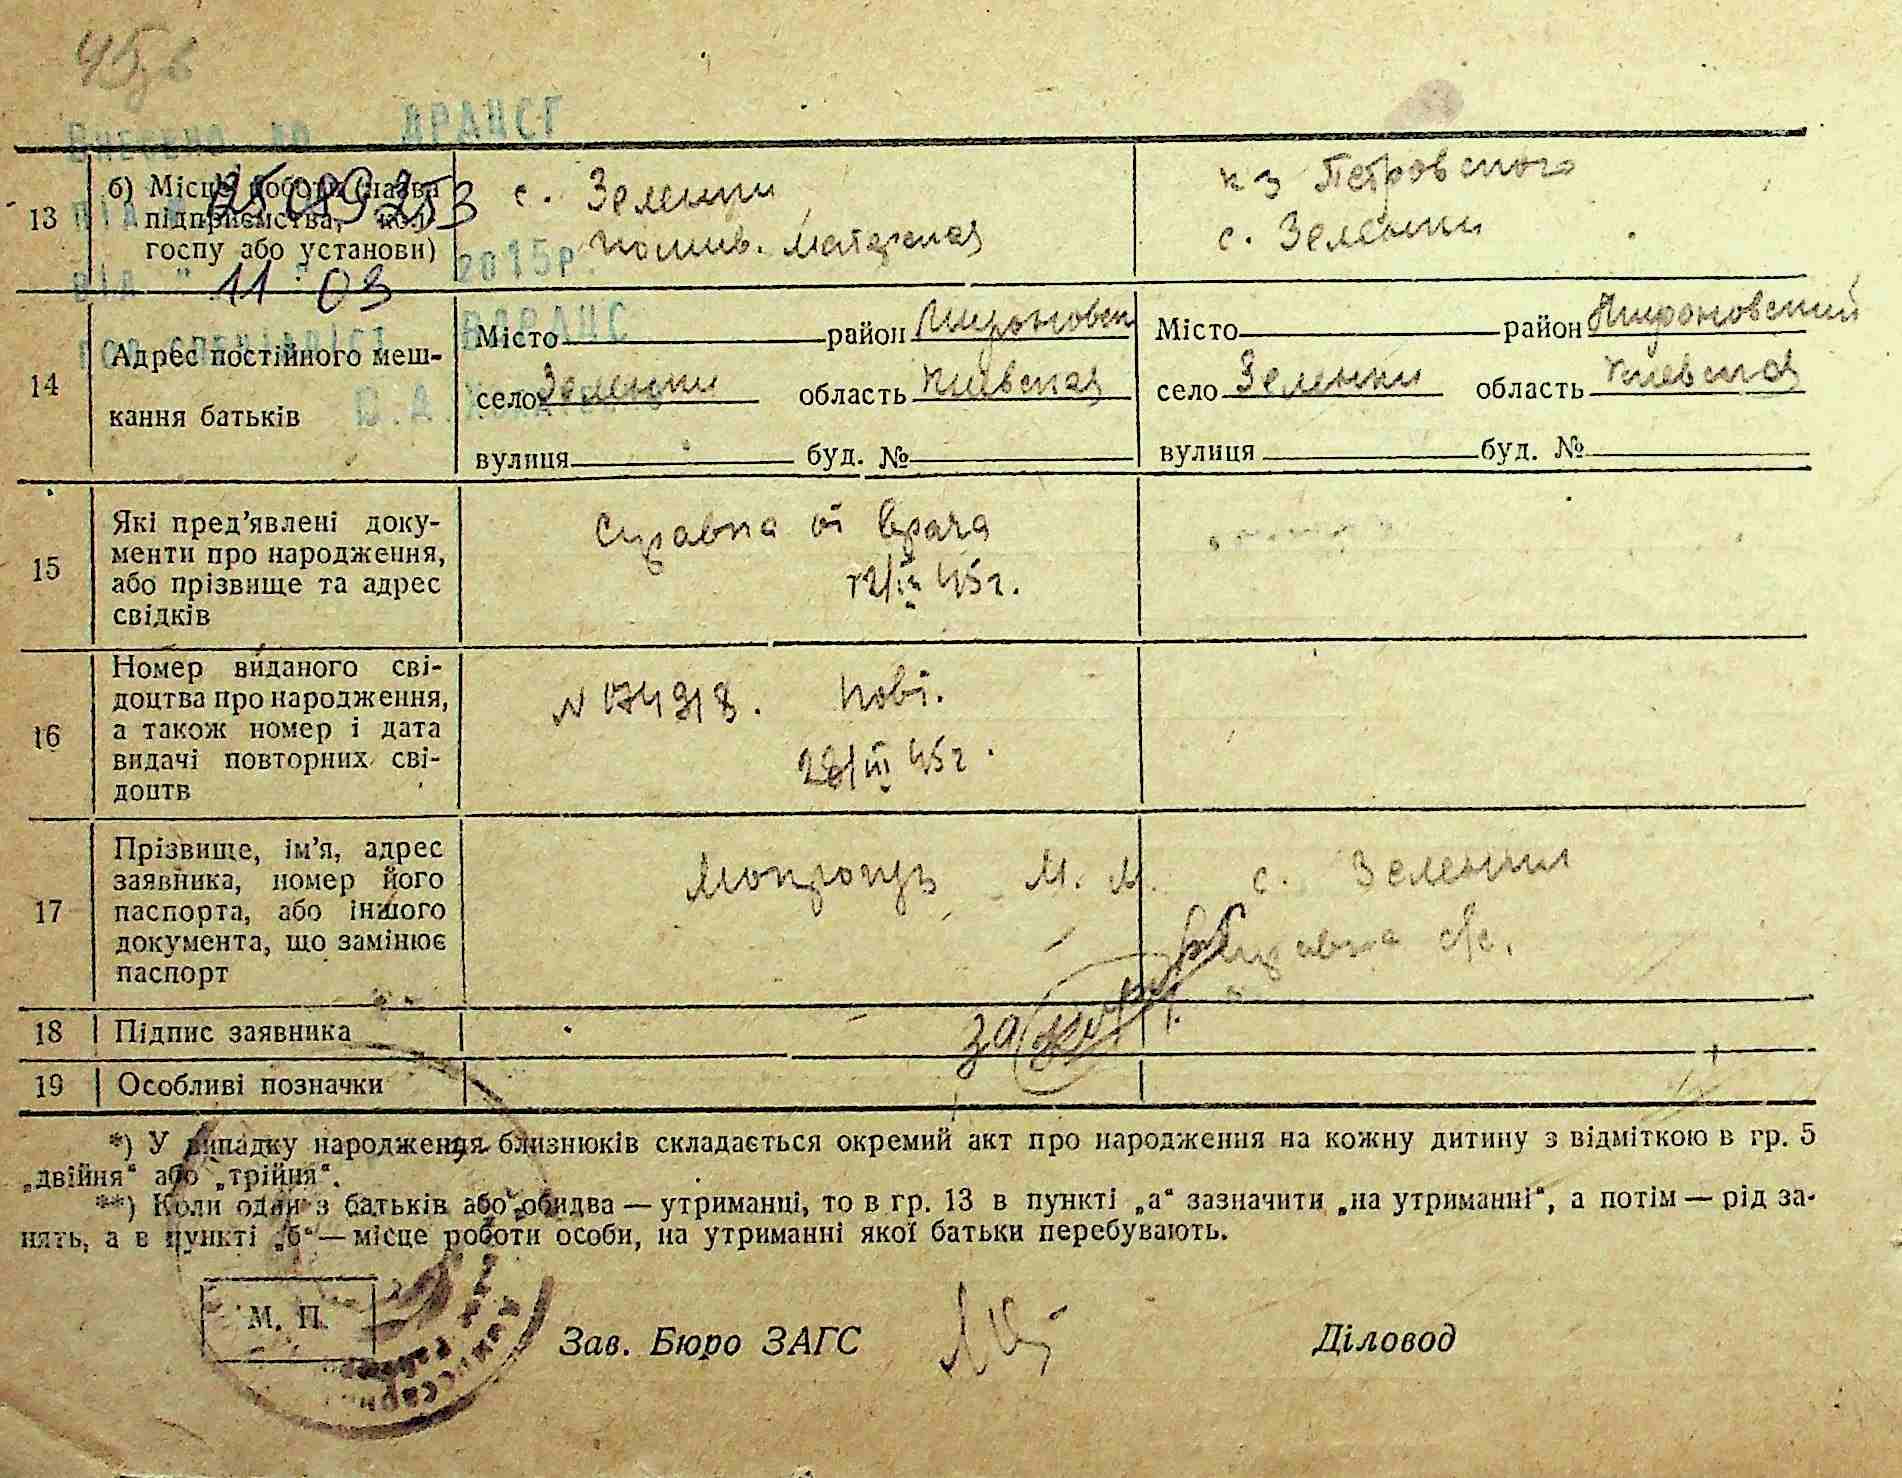 45
Внесено до ДРАЦСГ
2015р.
11 09
13
б) Місце роботи (назва
підприємства, кол-
госпу або установи)
с. Зеленьки
к-з Петровского
с. Зеленьки
14
Адрес постійного меш-
кання батьків
Місто район Мироновск
село Зеленьки область Киевская
вулиця буд. №
Місто район Мироновский
село Зеленьки область Киевская
вулиця буд. №
15
Які пред’явлені доку-
менти про народження,
або прізвище та адрес
свідків
Справка от врача
45г.
16
Номер виданого сві-
доцтва про народження,
а також номер і дата
видачі повторних сві-
доцтв
N 074918.
28/III 45г.
17
Прізвище, ім’я, адрес
заявника, номер його
паспорта, або іншого
документа, що замінює
паспорт
М. М. с. Зеленьки
справка с/с.
18 Підпис заявника
за
19 Особливі позначки
*) У випадку народження близнюків складається окремий акт про народження на кожну дитину з відміткою в гр. 5
„двійня“ або „трійня“.
**) Коли один з батьків або обидва — утриманці, то в гр. 13 в пункті „а“ зазначити „на утриманні“, а потім — рід за-
нять, а в пункті „б“ — місце роботи особи, на утриманні якої батьки перебувають.
М. П.
Зав. Бюро ЗАГС
Діловод